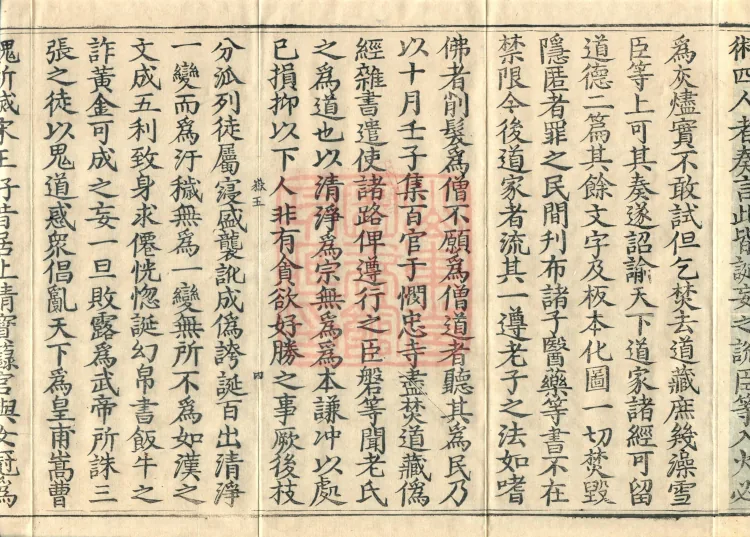 術四人者奏言此皆誕妄之說臣等入火必
爲灰燼實不敢試但乞焚去道藏庶幾澡雪
臣等上可其奏遂詔諭天下道家諸經可留
道德二篇其餘文字及板本化圖一切焚毀
隱匿者罪之民間刊布諸子醫藥等書不在
禁限今後道家者流其一遵老子之法如嗜
佛者削髮爲僧不願爲僧道者聽其爲民乃
以十月壬子集百官于憫忠寺盡焚道藏僞
經雜書遣使諸路俾遵行之臣磐等聞老氏
之爲道也以清淨爲宗無爲爲本謙冲以處
已損抑以下人非有貪欲好勝之事厥後枝
四
分派列徒屬寖盛襲訛成僞誇誕百出清淨
一變而爲汙穢無爲一變無所不爲如漢之
文成五利致身求僊恍惚誕幻帛書飯牛之
詐黃金可成之妄一旦敗露爲武帝所誅三
張之徒以鬼道惑衆倡亂天下爲皇甫嵩曹
所滅宋王上清寶籙宮與女冠爲